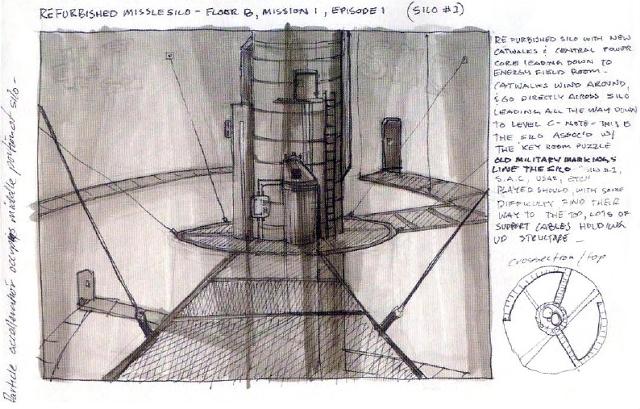 REFURBISHED MISSLE SILO - FLOOR B, MISSION 1, EPISODE 1 (SILO #1)
REFURBISHED SILO WITH NEW
CATWALKS & CENTRAL POWER
CORE LEADING DOWN TO
ENERGY FIELD ROOM -
CATWALKS WIND AROUND,
& GO DIRECTLY ACROSS SILO
LEADING ALL THE WAY DOWN
TO LEVEL C - NOTE - THIS IS
THE SILO ASSOC'D W/
THE "KEY ROOM PUZZLE
OLD MILITARY MARKINGS
LINE THE SILO
S.A.C., USAF, ETC!!
PLAYER SHOULD, WITH SOME
DIFFICULTY FIND THEIR
WAY TO THE TOP, LOTS OF
SUPPORT CABLES HOLDING
UP STRUCTURE -
crossection / top
Particle accellerator occupys middle portion of silo -